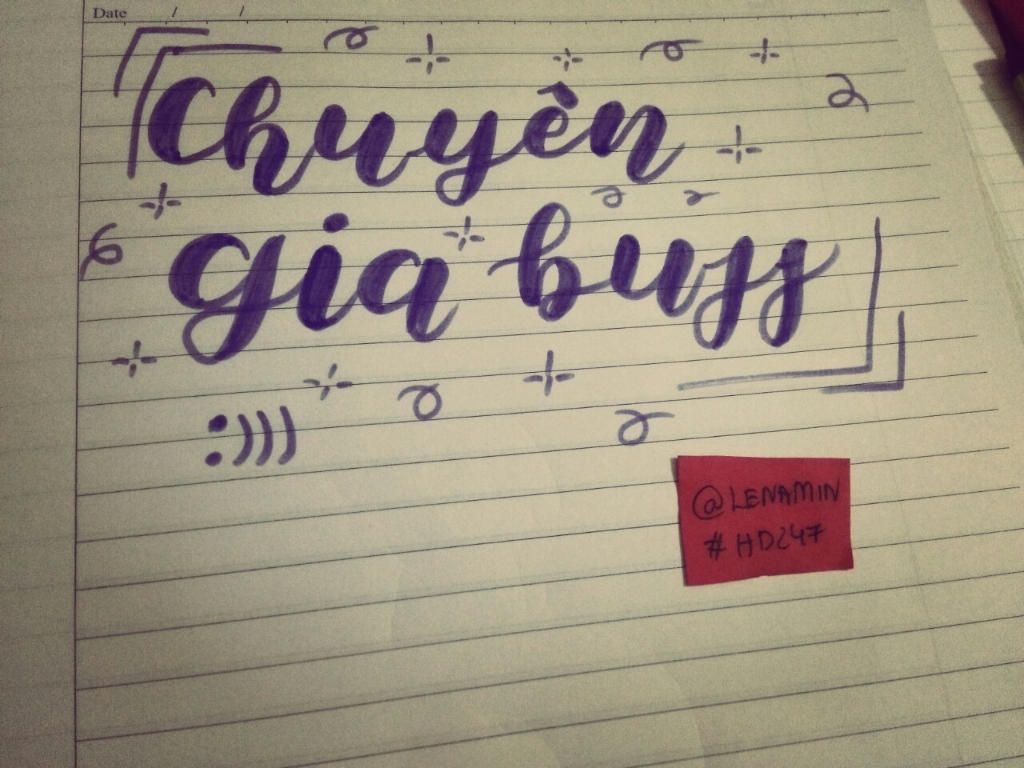 Date / /
Chuyên
gia bujj
:)))
@LENAMIN
#HD247